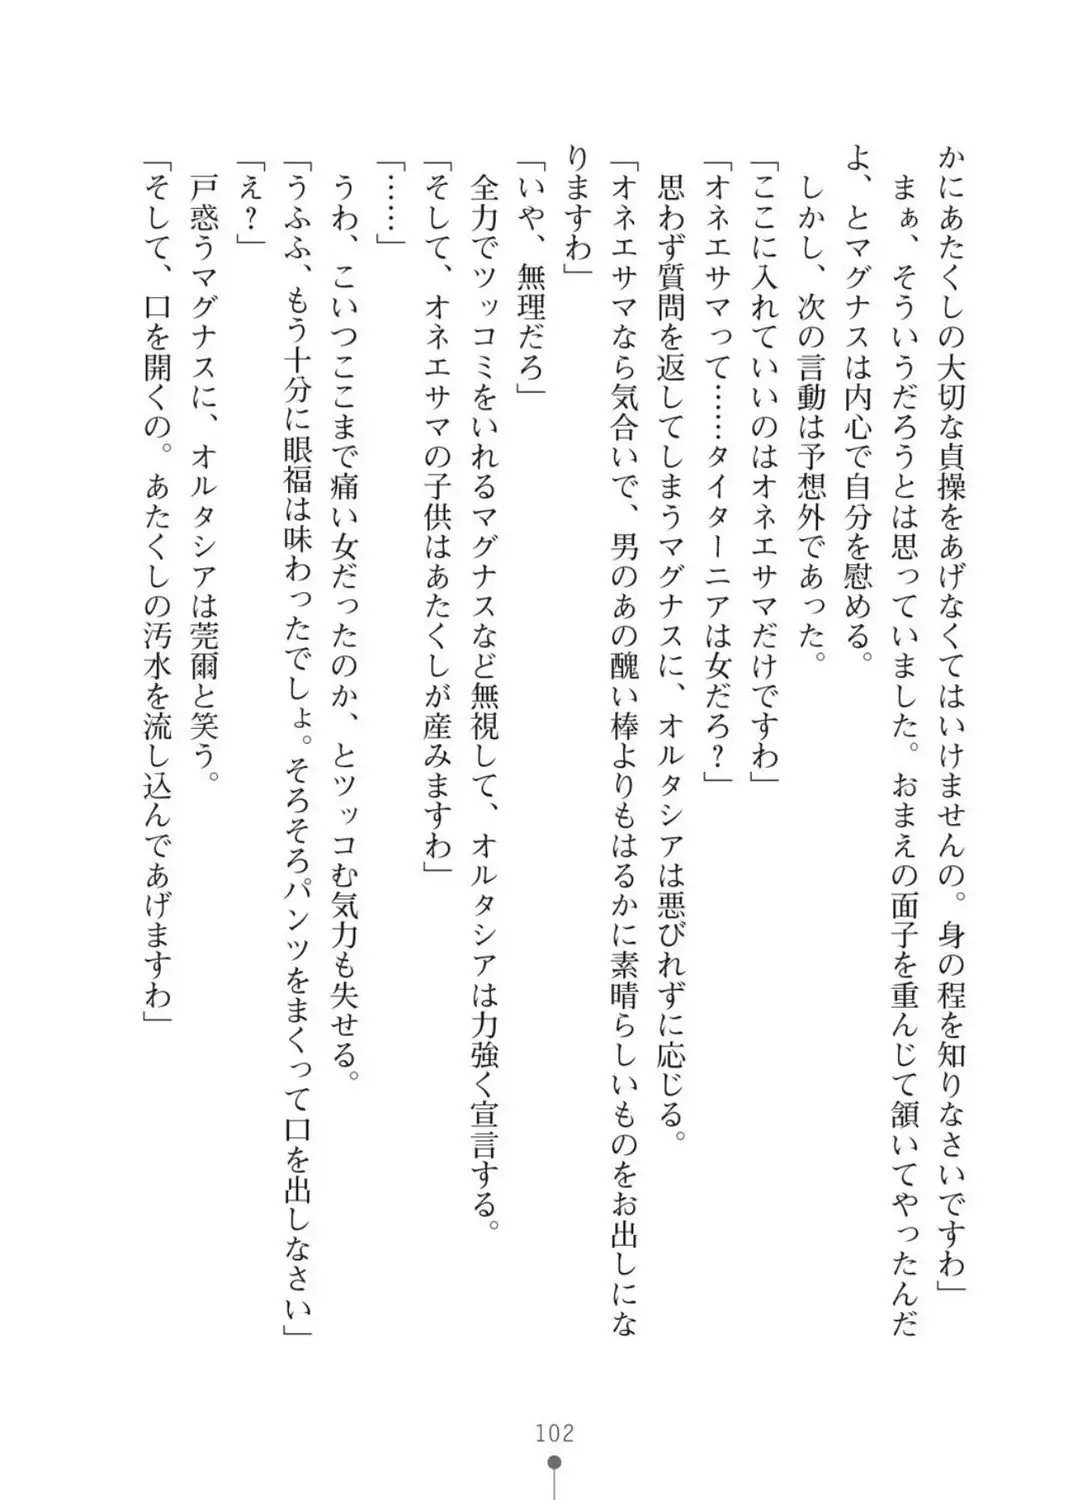 かにあたくしの大切な貞操をあげなくてはいけませんの。身の程を知りなさいですわ」
　まぁ、そういうだろうとは思っていました。おまえの面子を重んじて頷いてやったんだ
よ、とマグナスは内心で自分を慰める。
　しかし、次の言動は予想外であった。
「ここに入れていいのはオネエサマだけですわ」
「オネエサマって……タイターニアは女だろ？」
　思わず質問を返してしまうマグナスに、オルタシアは悪びれずに応じる。
「オネエサマなら気合いで、男のあの醜い棒よりもはるかに素晴らしいものをお出しにな
りますわ」
「いや、無理だろ」
　全力でツッコミをいれるマグナスなど無視して、オルタシアは力強く宣言する。
「そして、オネエサマの子供はあたくしが産みますわ」
「……」
　うわ、こいつここまで痛い女だったのか、とツッコむ気力も失せる。
「うふふ、もう十分に眼福は味わったでしょ。そろそろパンツをまくって口を出しなさい」
「え？」
　戸惑うマグナスに、オルタシアは莞爾と笑う。
「そして、口を開くの。あたくしの汚水を流し込んであげますわ」
102